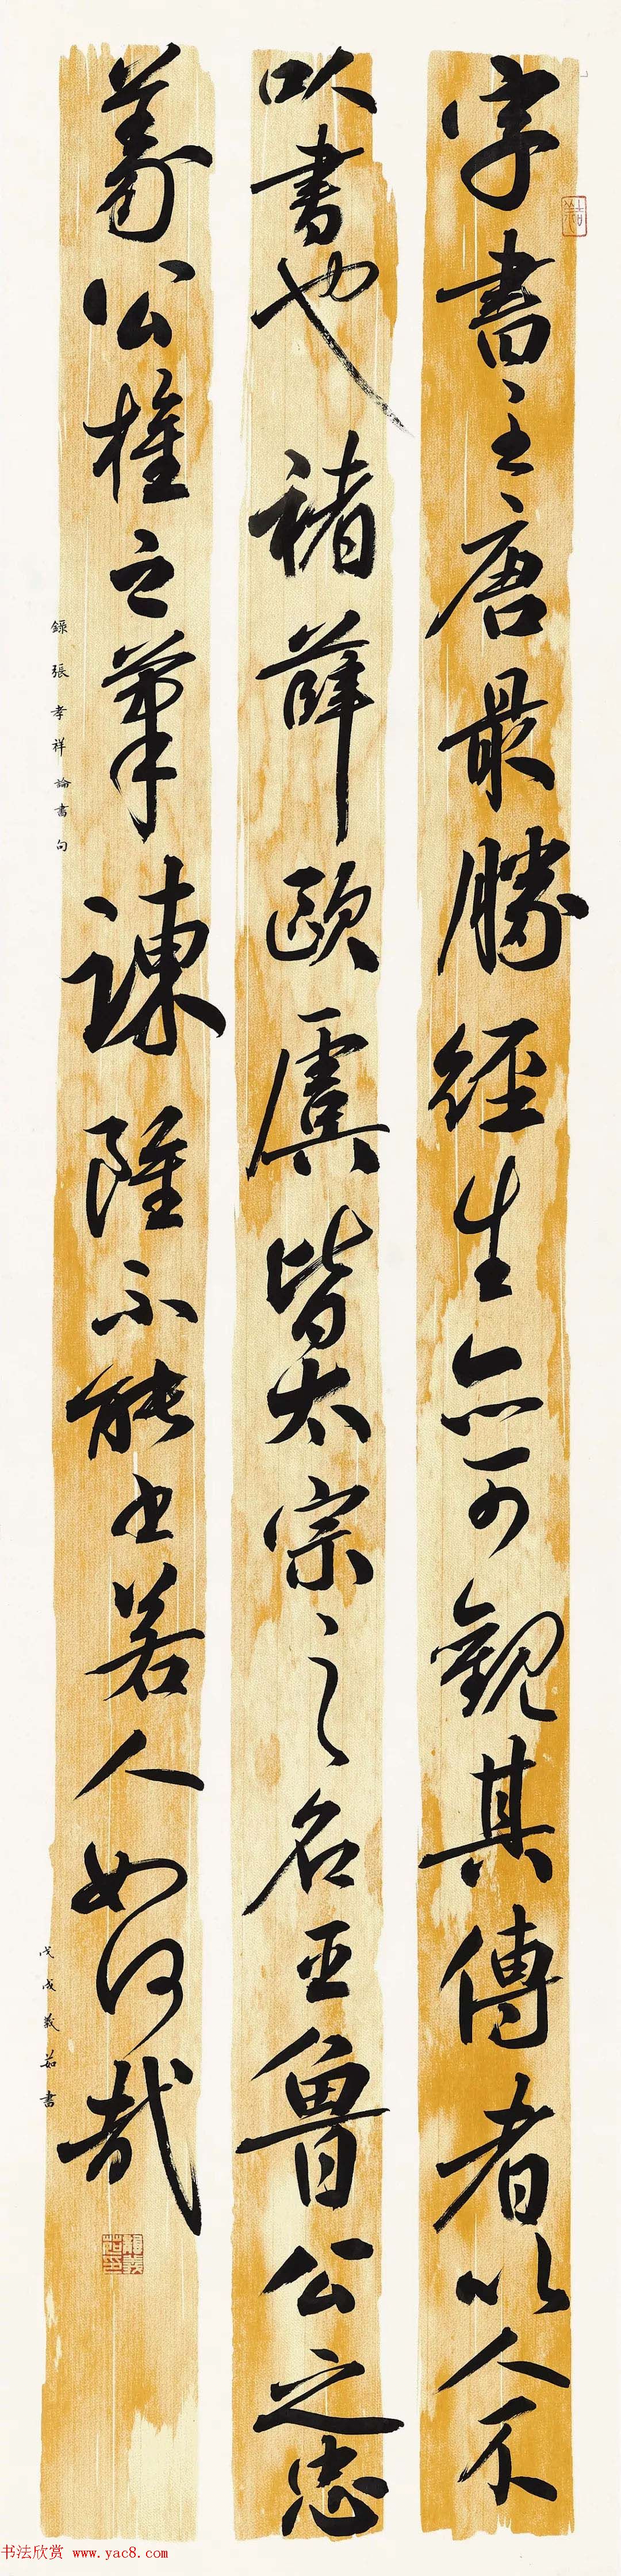 字書至唐最勝經生亦可觀其傳者以人不
以書也褚薛歐虞皆太宗之名臣魯公之忠
義公權之筆諫雖不能書若人如何哉
錄張孝祥論書句
戊戌義茹書
书法欣赏 www.yac8.com